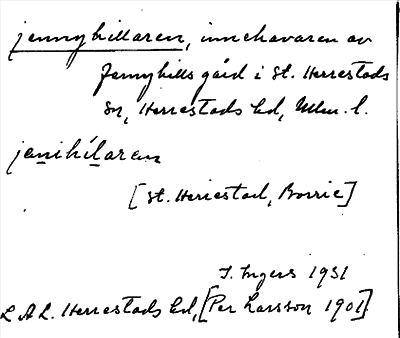 jennyhillaren, innehavaren av
Jennyhills gård i St. Herrestads
sn, Herrestads hd, Mlm. l.
jenihílaren
[St. Herrestad, Borrie]
I. Ingers 1931
L A L. Herrestads hd, [Per Larsson 1901]